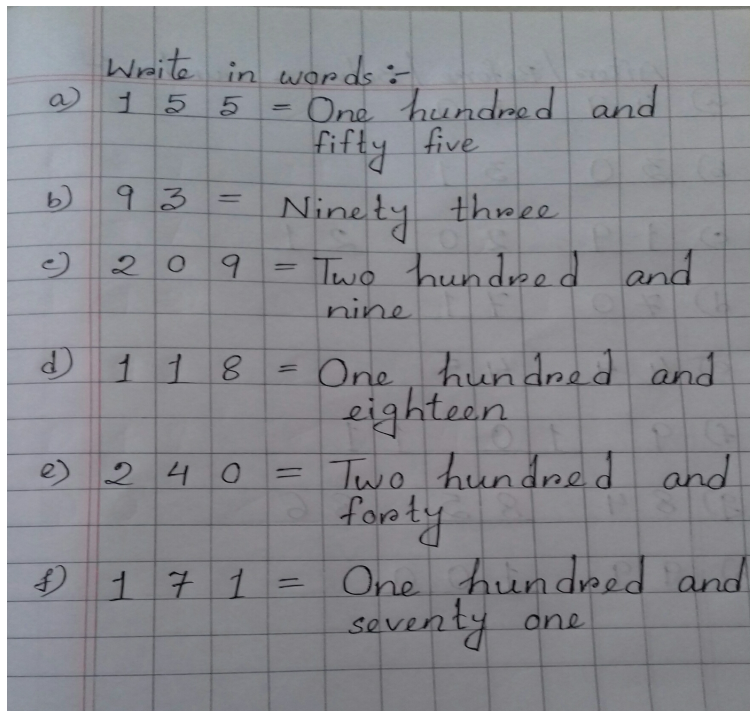 Write in words :-
a) 1 5 5 = One hundred and
fifty five
b) 9 3 = Ninety three
c) 2 0 9 = Two hundred and
nine
d) 1 1 8 = One hundred and
eighteen
e) 2 4 0 = Two hundred and
forty
f) 1 7 1 = One hundred and
seventy one